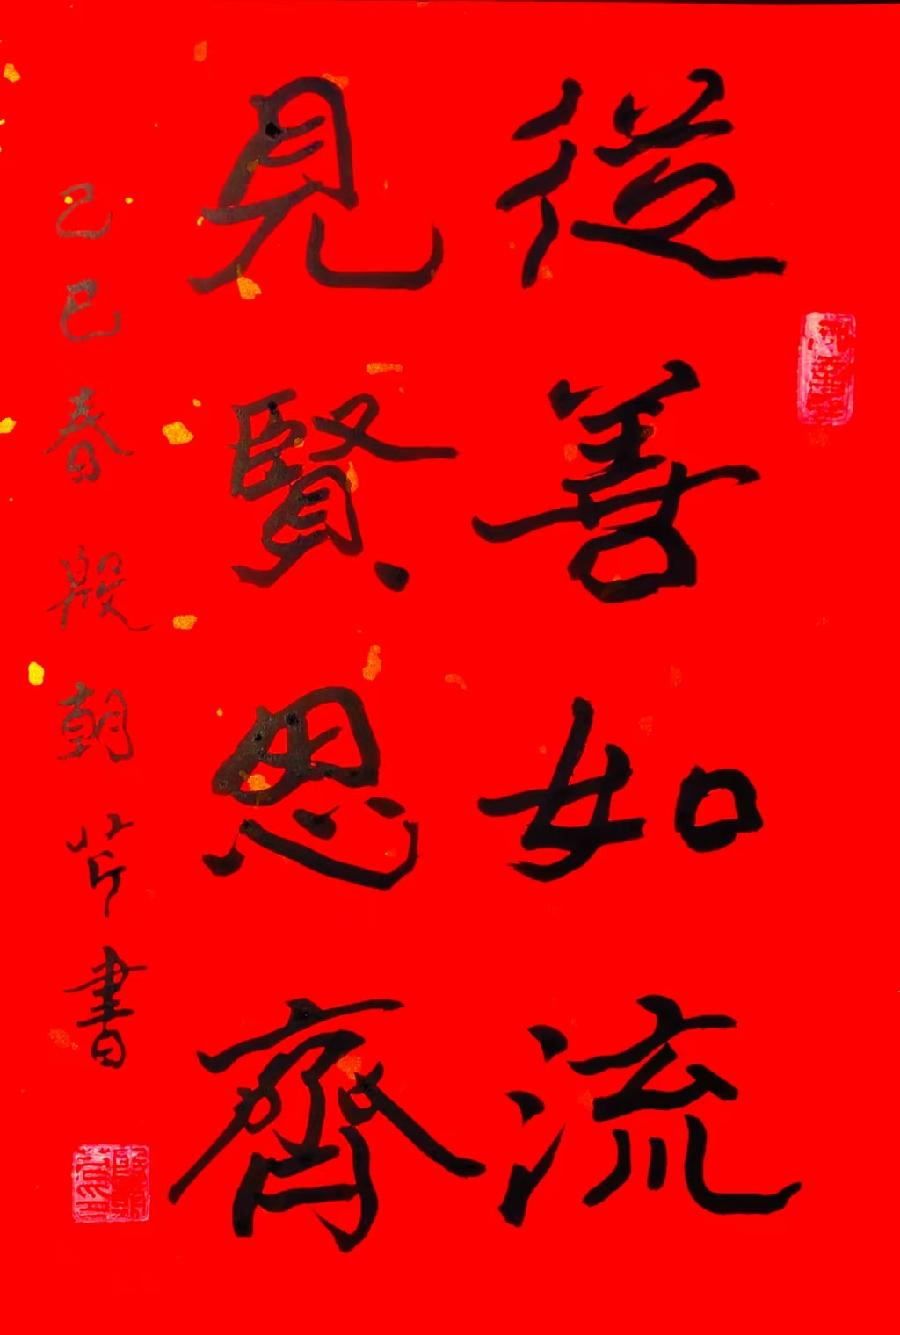 從善如流
見賢思齊
己巳春殷朝芹書